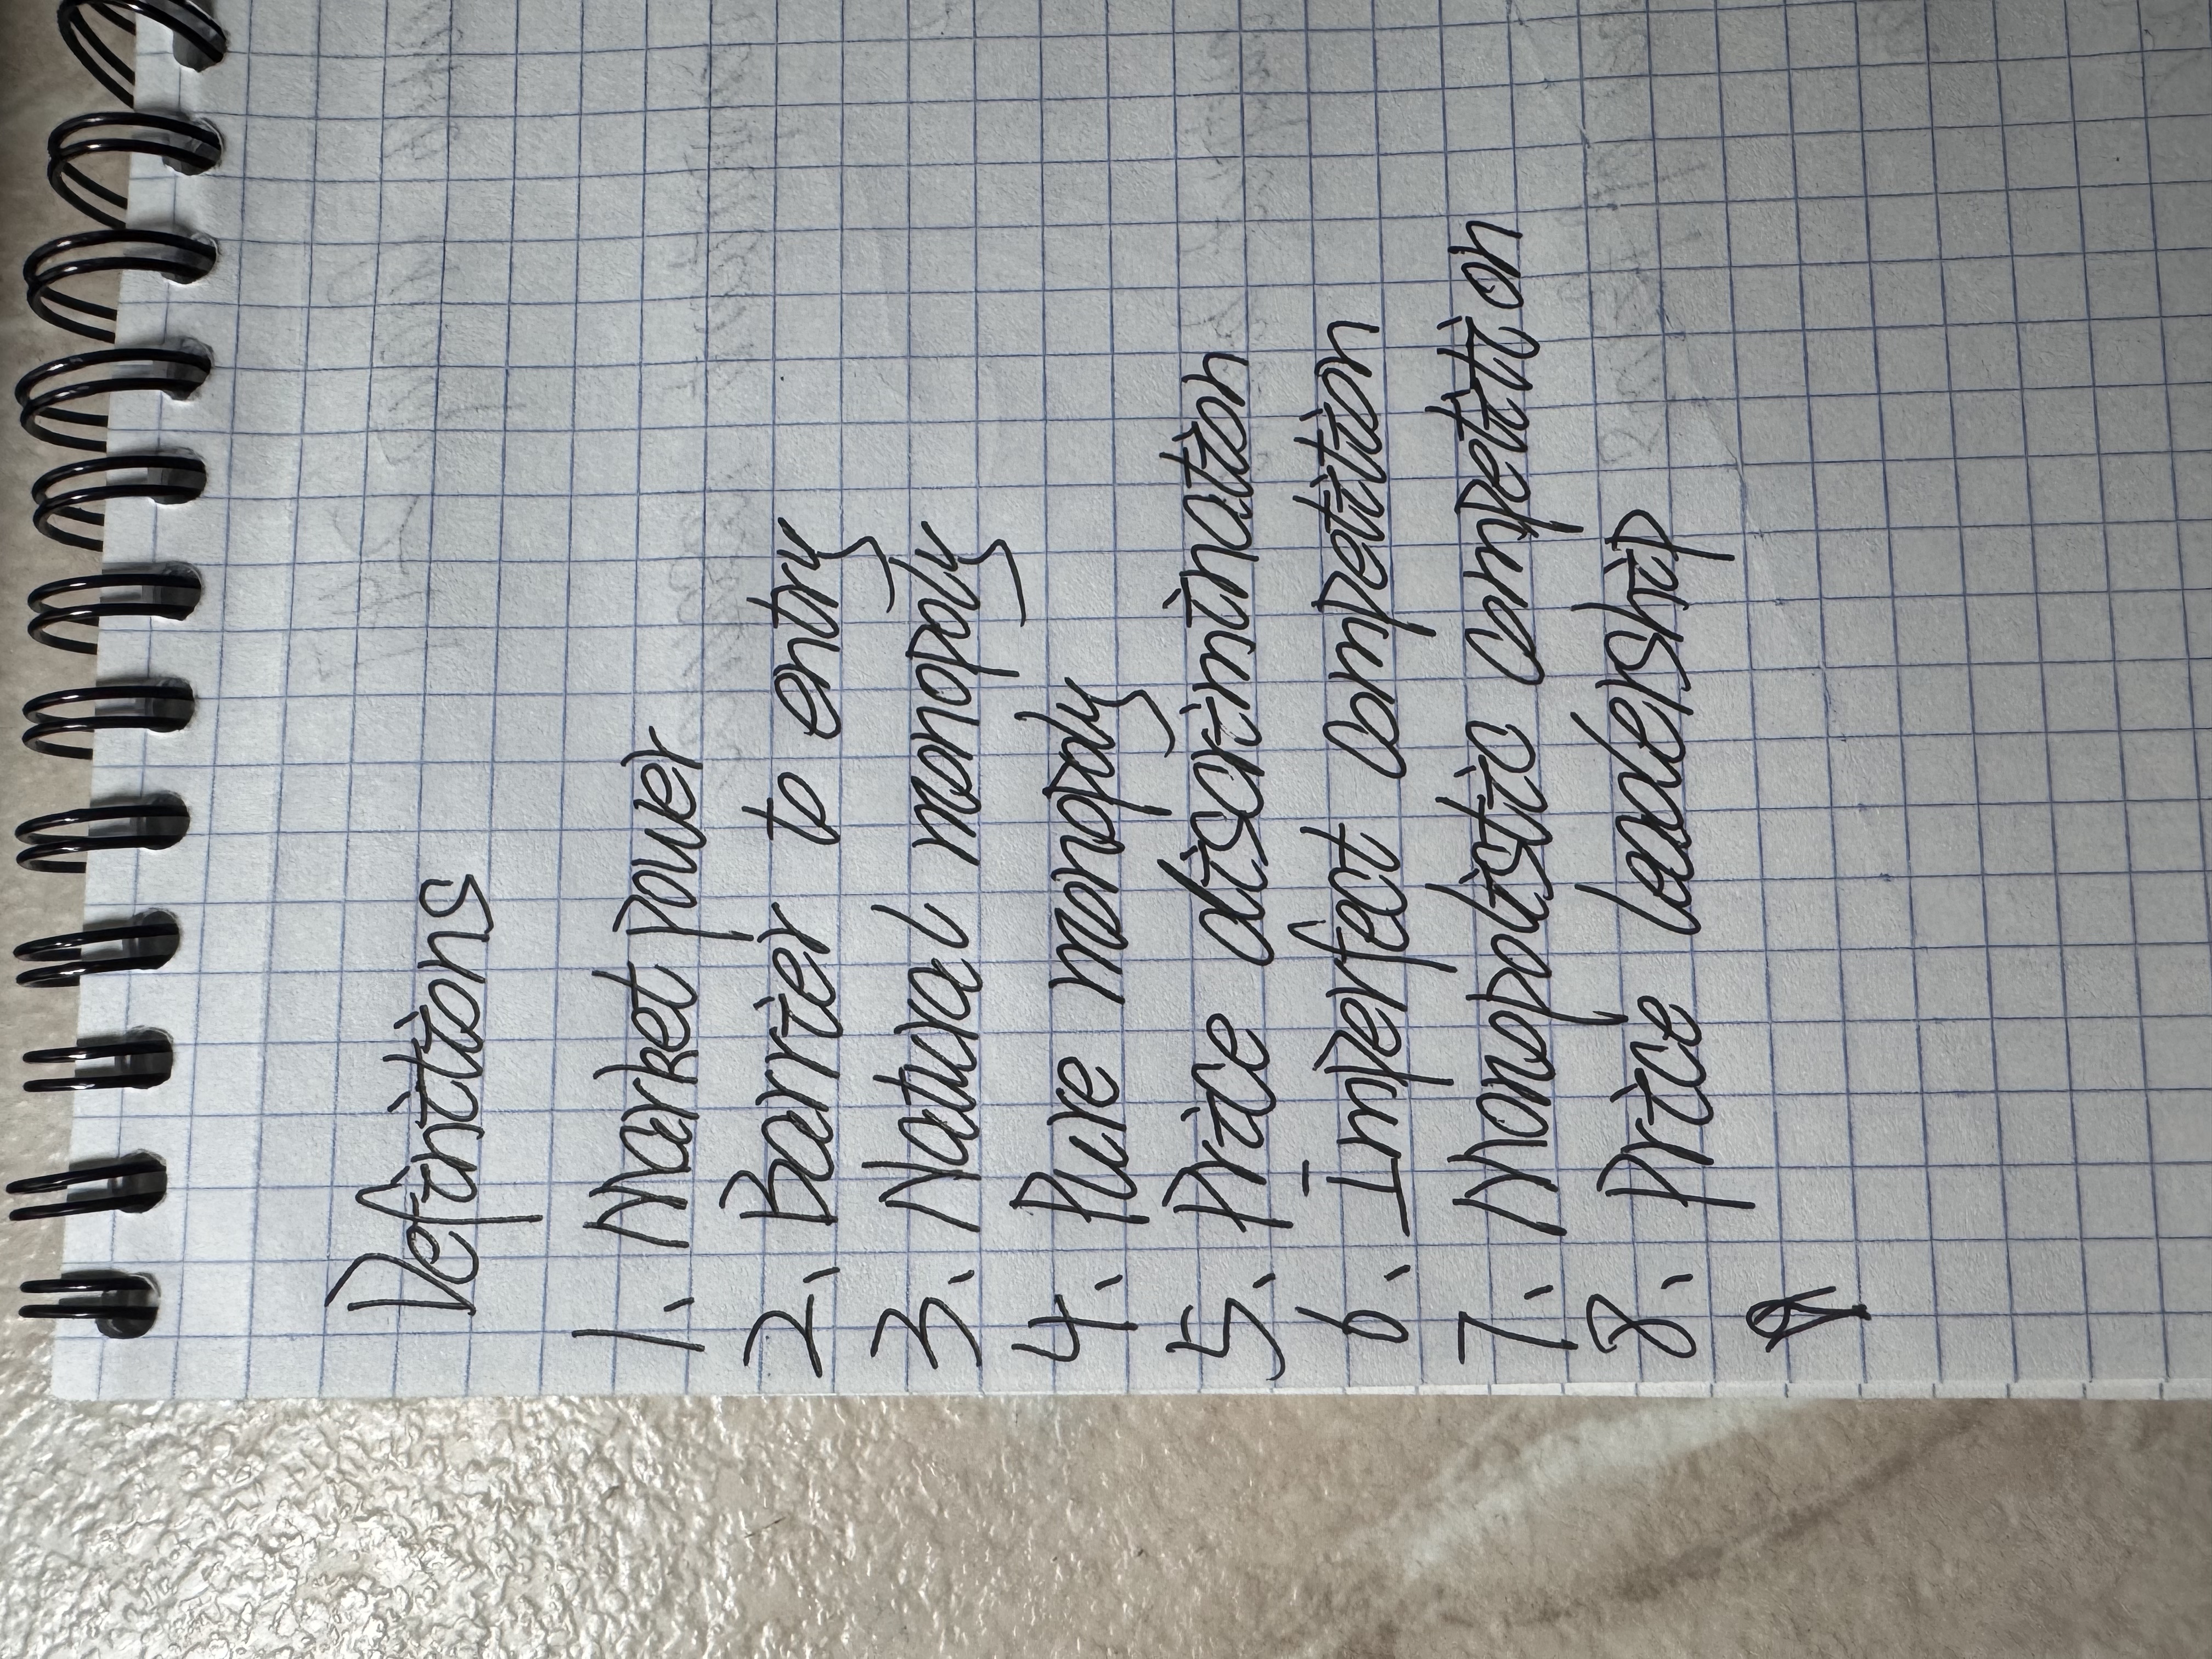 Definitions
1. Market power
2. Barrier to entry
3. Natural monopoly
4. Pure monopoly
5. Price discrimination
6. Imperfect competition
7. Monopolistic competition
8. Price leadership